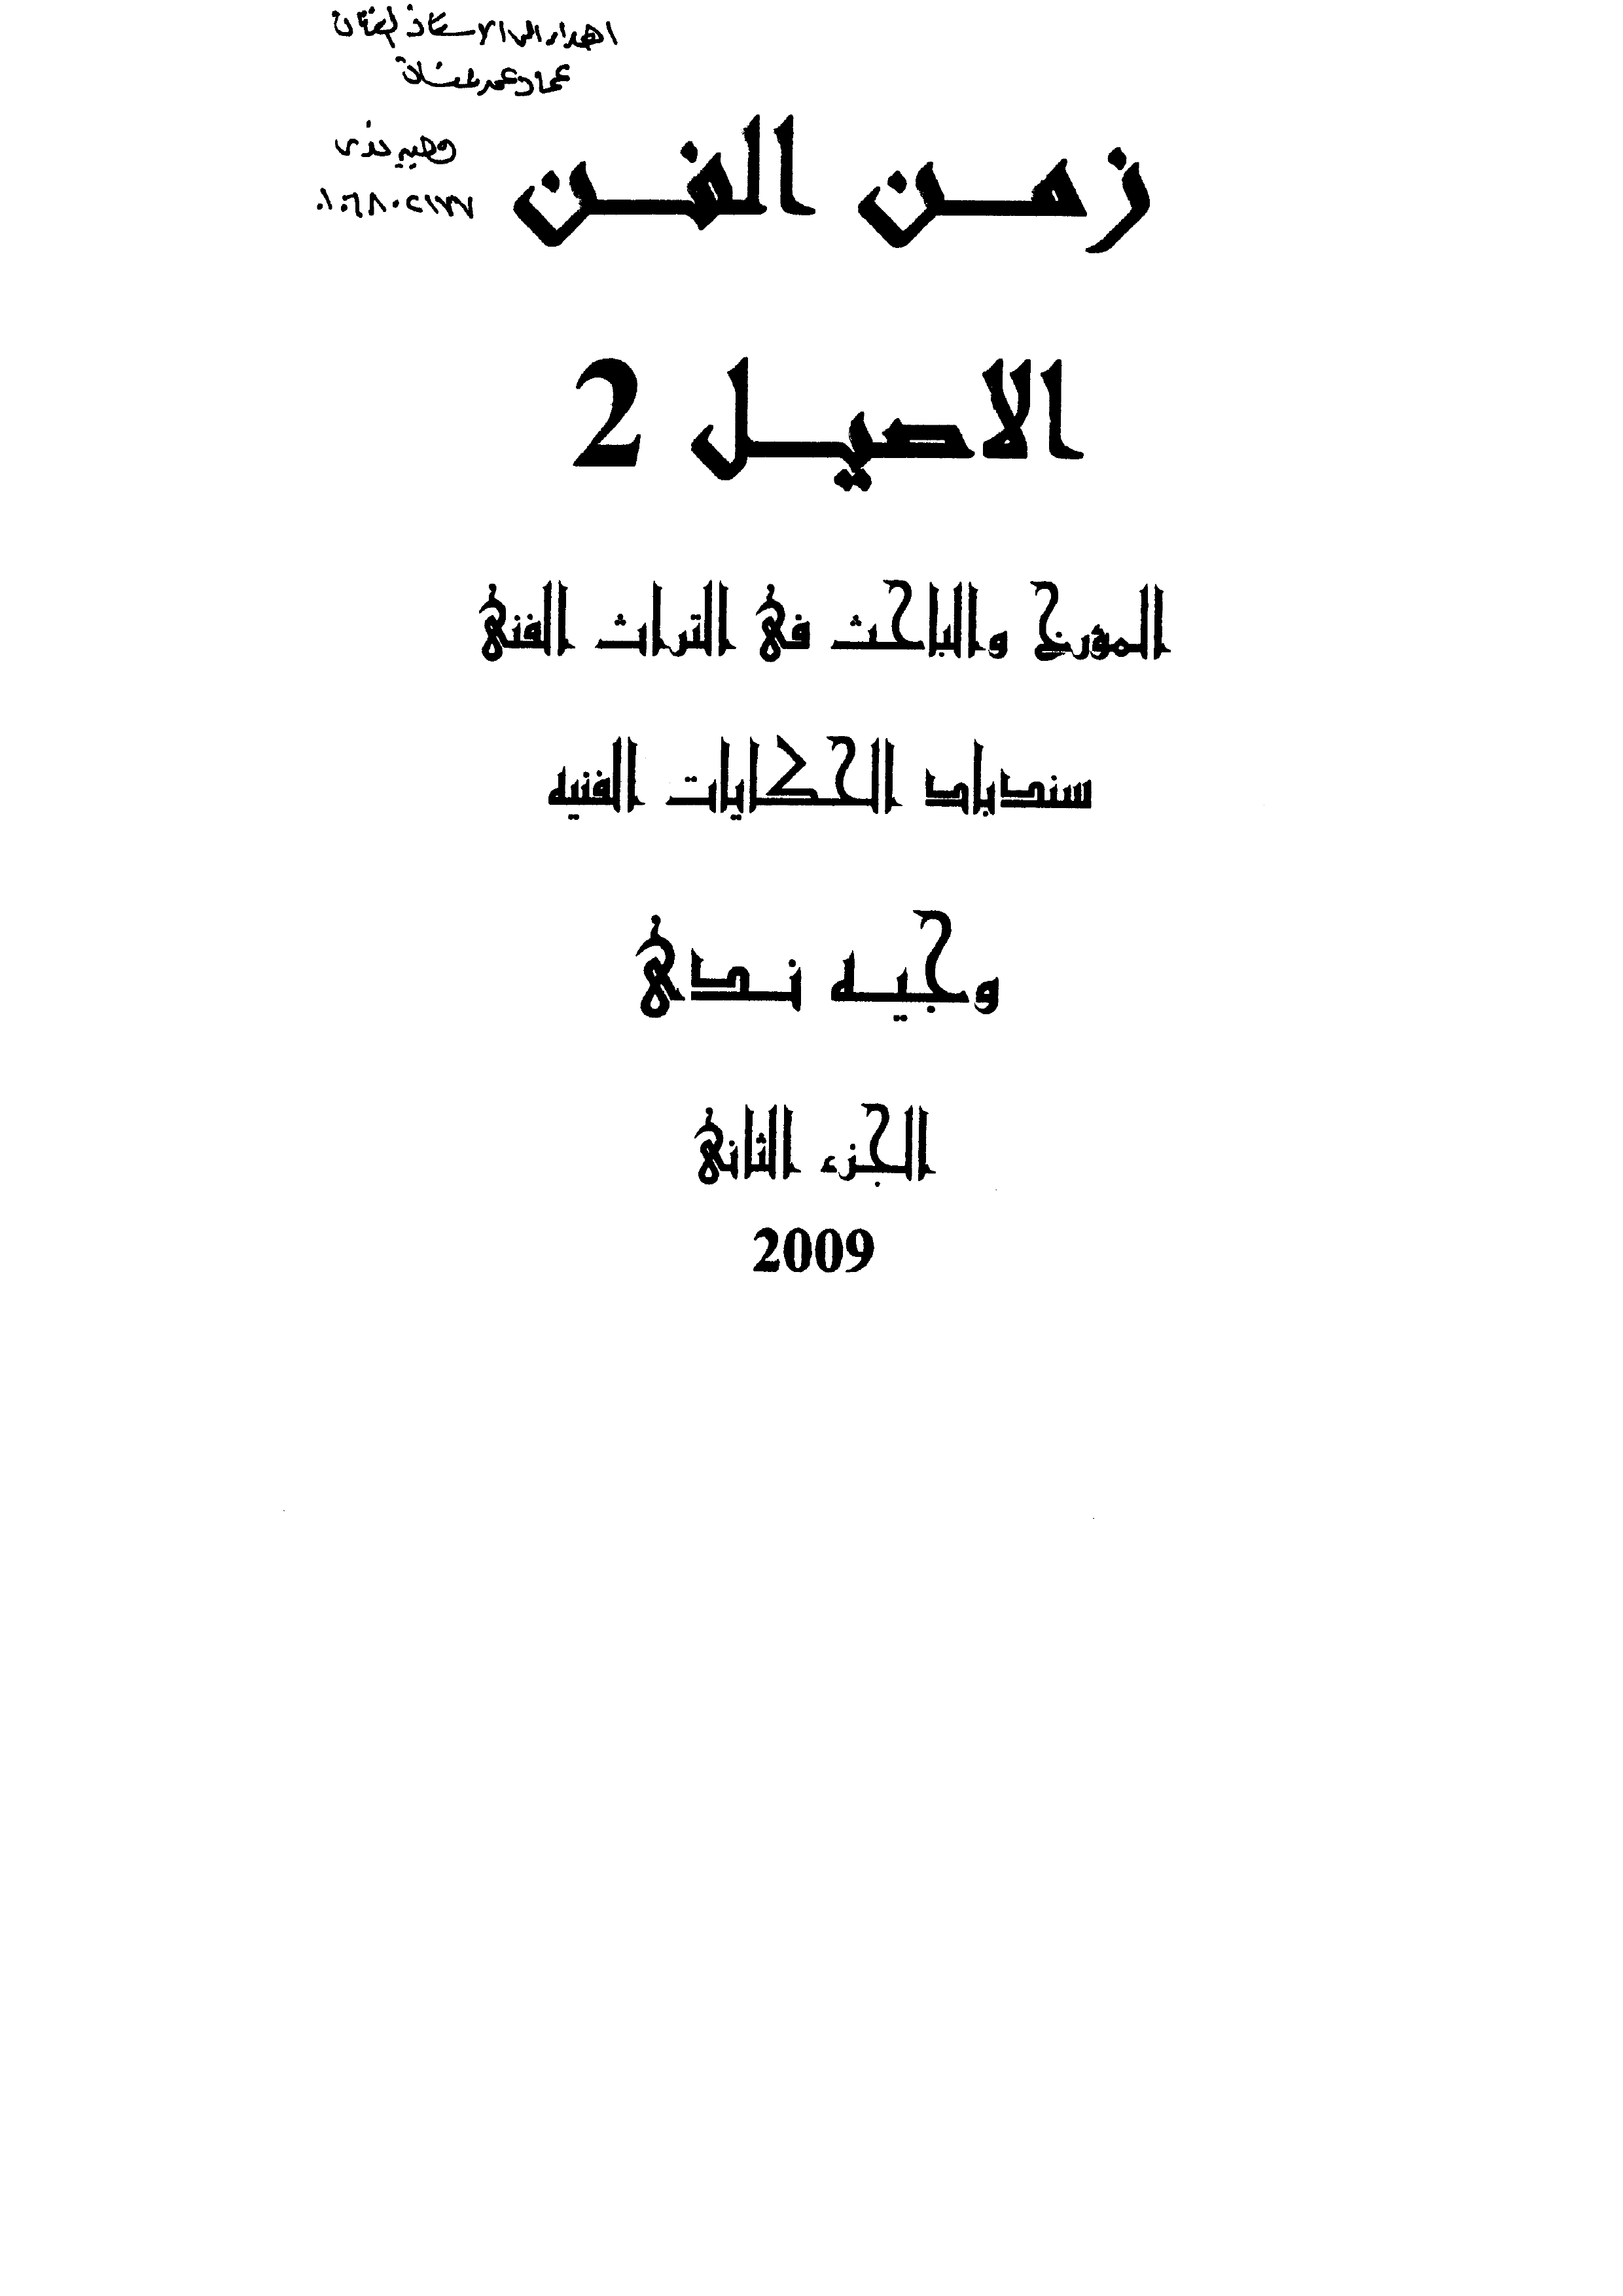 اهداء الى الاستاذ الفنان
عماد عمر
وجيه ندى
زمن الفن
الاصيل 2
المؤرخ والباحث فى التراث الفنى
سندباد الحكايات الفنيه
وجيه ندى
الجزء الثانى
2009